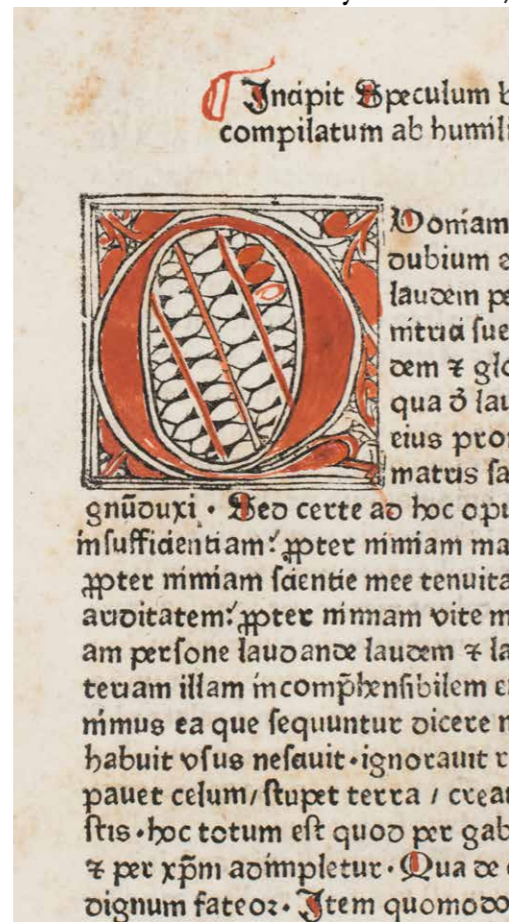 Incipit Speculum b
compilatum ab humili
QUoniam
dubium e
laudem pe
sue
dem ⁊ glo
qua ð lau
eius pro
matris sa
gnū duxi · Sed certe ad hoc opu
insufficientiam: ꝓpter nimiam ma
ꝓpter nimiam scientie mee tenuita
ariditatem: ꝓpter nimiam vite m
am persone laudande laudem ⁊ la
teriam illam incomp̄hensibilem e
nimus ea que sequuntur dicere n
habuit vsus nesciuit · ignorauit r
pauet celum / stupet terra / creat
stis · hoc totum est quod per gab
⁊ per xp̄m adimpletur · Qua de
dignum fateor · Item quomodo